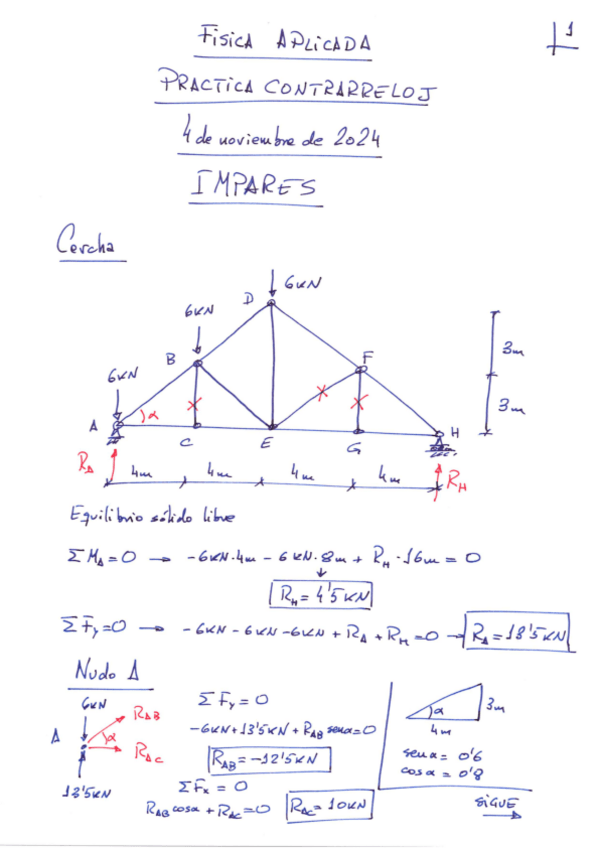 1
FISICA APLICADA
PRACTICA CONTRARRELOJ
4 de noviembre de 2024
IMPARES
Cercha
6KN
D
6KN
B
F
3m
6KN
3m
A
α
H
C
E
G
R_A
4m
4m
4m
4m
R_H
Equilibrio sólido libre
ΣM_A=0 → -6KN·4m - 6KN·8m + R_H·16m = 0
↓
R_H = 4'5KN
ΣF̄y=0 → -6KN-6KN-6KN + R_A + R_H =0 → R_A = 18'5KN
Nudo A
6KN
R_AB
A
α
R_AC
13'5KN
ΣF̄y = 0
-6KN+13'5KN+R_AB senα=0
R_AB = -12'5KN
ΣF̄x = 0
R_AB cosα + R_AC=0
R_AC = 10KN
α
3m
4m
senα = 0'6
cosα = 0'8
SIGUE